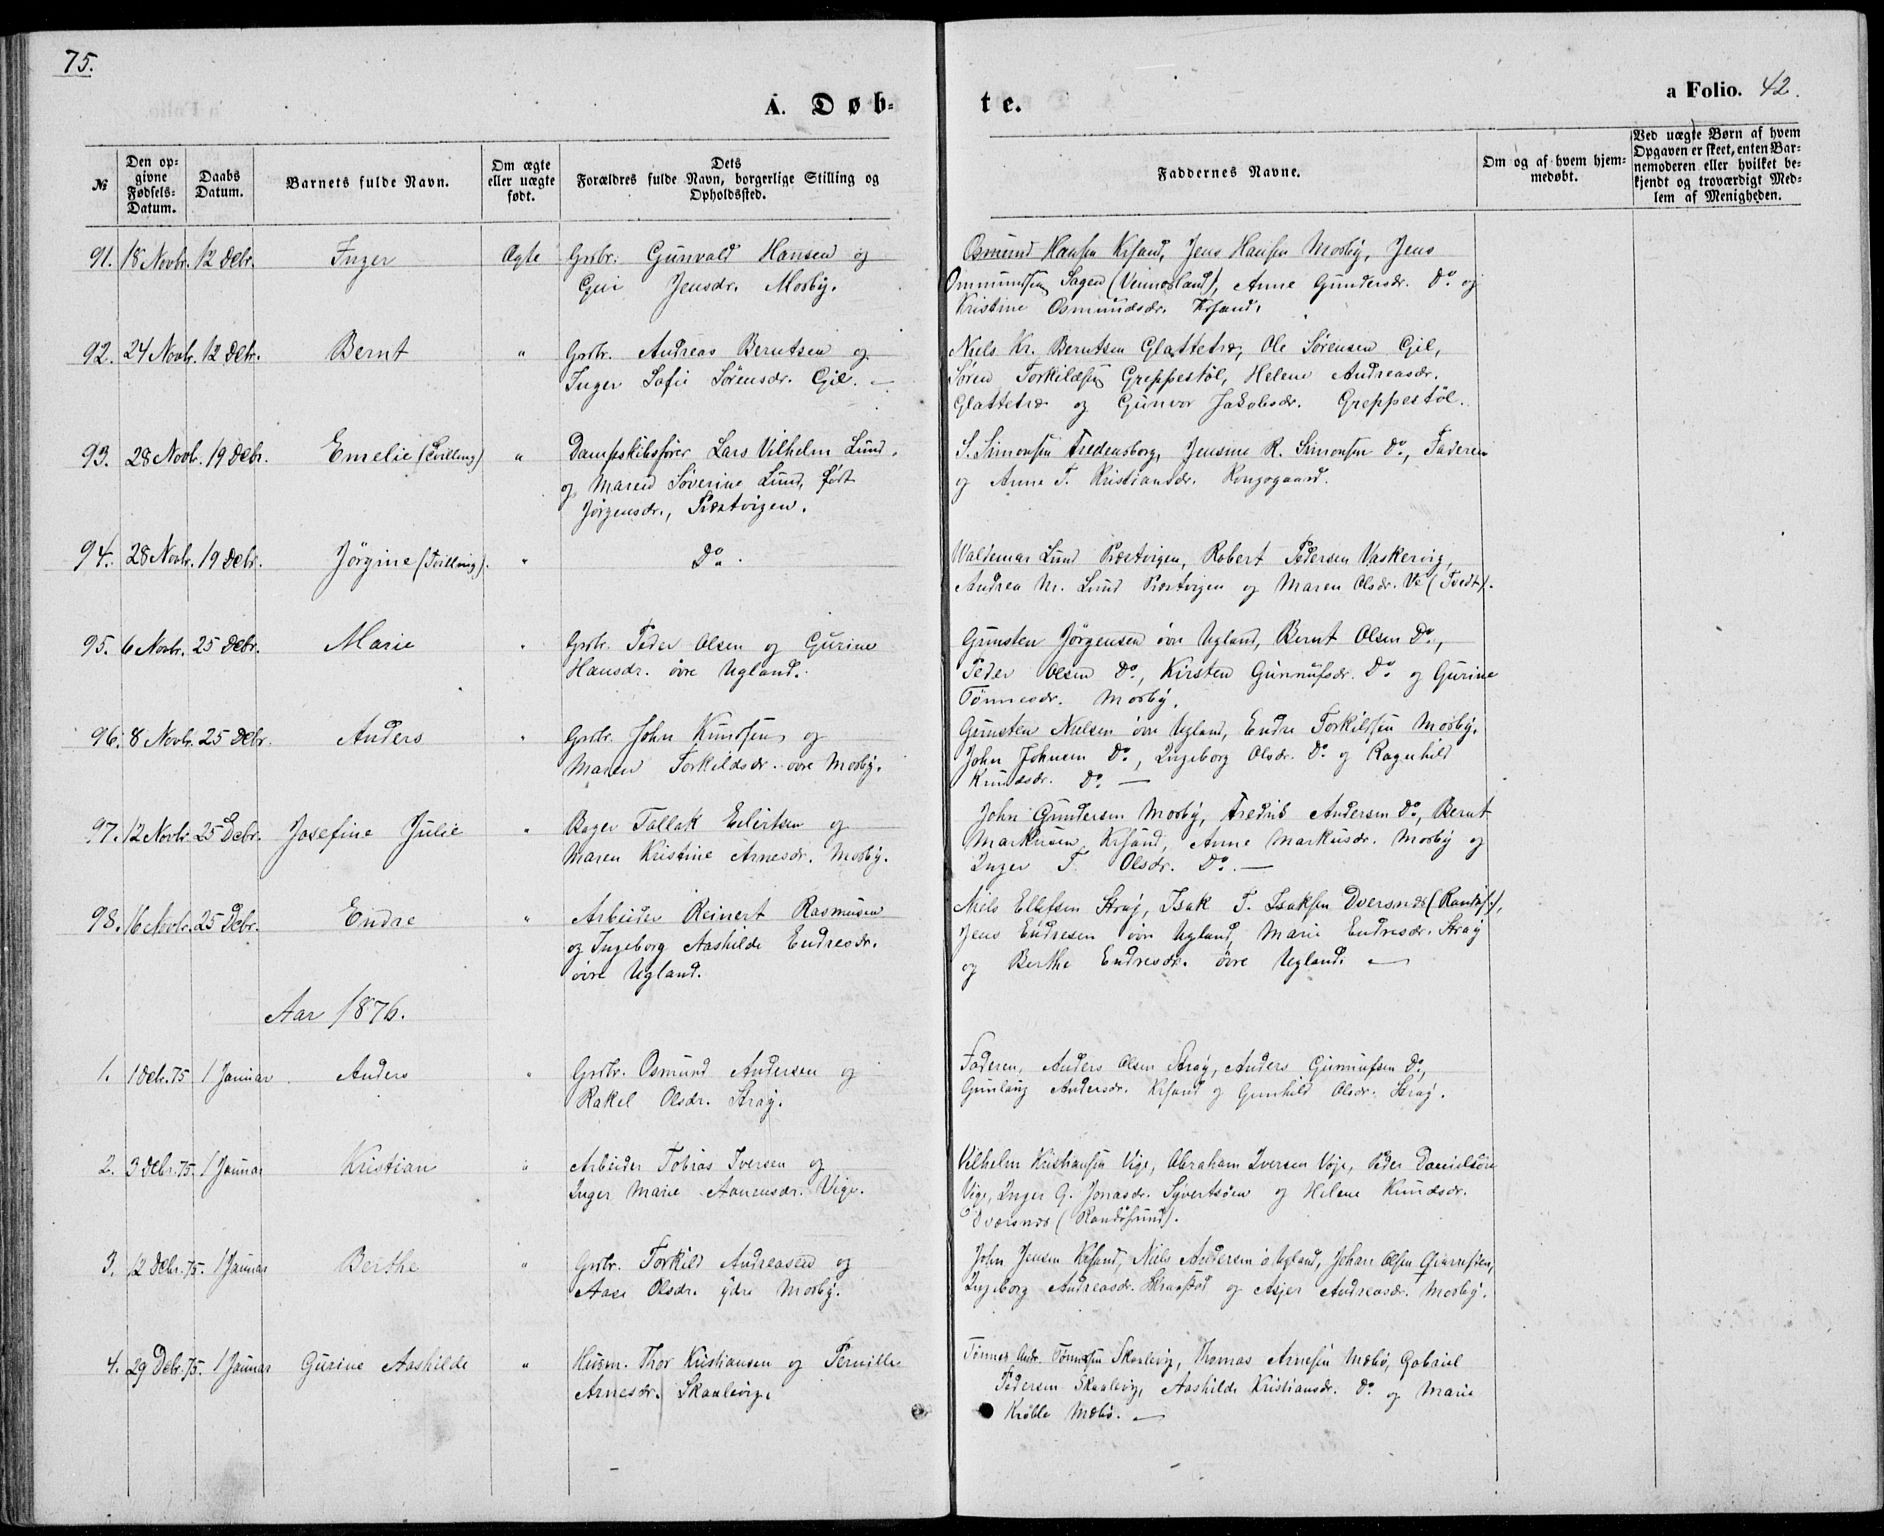 75.
A. Døb-
te.
a Folio. 42.
№
Den op-
givne
Fødsels-
Datum.
Daabs
Datum.
Barnets fulde Navn.
Om ægte
eller uægte
født.
Dets
Forældres fulde Navn, borgerlige Stilling og
Opholdssted.
Faddernes Navne.
Om og af hvem hjem-
medøbt.
Ved uægte Børn af hvem
Opgaven er skeet, enten Bar-
nemoderen eller hvilket be-
kjendt og troværdigt Med-
lem af Menigheden.
91. 18 Novbr. 12 Debr. Inger Ægte Grbr. Gunvald Hansen og
Guri Jensdr. Mosby.
Osmund Hansen Krsand, Jens Hansen Mosby, Jens
Ommundsen Sagen (Vennesland), Anne Gundersdr. Do og
Kristine Osmundsdr. Krsand.
92. 24 Novbr. 12 Debr. Bernt " Grbr. Andreas Berntsen og
Inger Sofie Sørensdr. Gil. —
Niels Kr. Berntsen Glattetre, Ole Sørensen Gil,
Søren Torkildsen Greppestøl, Helene Andreasdr.
Glattetre og Gunvor Jakobsdr. Greppestøl.
93. 28 Novbr. 19 Debr. Emelie (Tvilling) " Dampskibsfører Lars Vilhelm Lund
og Maren Severine Lund, født
Jørgensdr., Præstvigen.
S. Simonsen Fredensborg, Jensine R. Simonsen Do, Faderen
og Anne T. Kristiansdr. Kongsgaard.
94. 28 Novbr. 19 Debr. Jørgine (Tvilling). " Do.
Waldemar Lund Præstvigen, Robert Pedersen Vaskervig,
Andrea M. Lund Præstvigen og Maren Olsdr. Ve (Tvedt).
95. 6 Novbr. 25 Debr. Marie " Grbr. Peder Olsen og Gurine
Hansdr. øvre Ugland.
Gunsten Jørgensen øvre Ugland, Bernt Olsen Do,
Peder Olsen Do, Kirsten Gunnufsdr. Do og Gurine
Tønnesdr. Mosby.
96. 8 Novbr. 25 Debr. Anders " Grbr. John Knudsen og
Maren Torkildsdr. øvre Mosby.
Gunsten Nielsen øvre Ugland, Endre Torkildsen Mosby,
John Johnsen Do, Ingeborg Olsdr. Do og Ragnhild
Knudsdr. Do —
97. 12 Novbr. 25 Debr. Josefine Julie " Bager Tallak Eilertsen og
Maren Kristine Arnesdr. Mosby.
John Gundersen Mosby, Fredrik Andersen Do, Bernt
Markusen Krsand, Anne Markusdr. Mosby og
Inger T. Olsdr. Do. —
98. 16 Novbr. 25 Debr. Endre " Arbeider Reinert Rasmusen
og Ingeborg Aashilde Endresdr.
øvre Ugland.
Niels Ellefsen Strag, Isak T. Isaksen Dversnes (Randøs.),
Jens Endresen øvre Ugland, Marie Endresdr. Strag
og Berthe Endresdr. øvre Ugland. —
Aar 1876.
1. 1 Debr. 75 1 Januar Anders " Grbr. Osmund Andersen og
Rakel Olsdr. Strag.
Faderen, Anders Olsen Strag, Anders Gunnufsen Do,
Gunlaug Andersdr. Krsand og Gunhild Olsdr. Strag.
2. 3 Debr. 75. 1 Januar Kristian " Arbeider Tobias Iversen og
Inger Marie Aanensdr. Vige.
Vilhelm Kristiansen Vige, Abraham Iversen Voje, Peder Danielsen
Vige, Inger G. Jonasdr. Syvertsøen og Helene Knudsdr.
Dversnes (Randøsund).
3. 12 Debr. 75. 1 Januar Berthe " Grbr. Torkild Andreasen og
Aase Olsdr. ydre Mosby.
John Jensen Krsand, Niels Andersen ø. Ugland, Johan Olsen
Ingeborg Andreasdr. og Asjer Andreasdr. Mosby.
4. 29 Debr. 75. 1 Januar Gurine Aashilde " Husm. Thor Kristiansen og Pernille
Arnesdr. Skaalevig.
Tønnes Andr. Tønnesen Skaalevig, Thomas Arnesen Mæbø, Gabriel
Pedersen Skaalevig, Aashilde Kristiansdr. Do og Marie
Krøble Mæbø. —